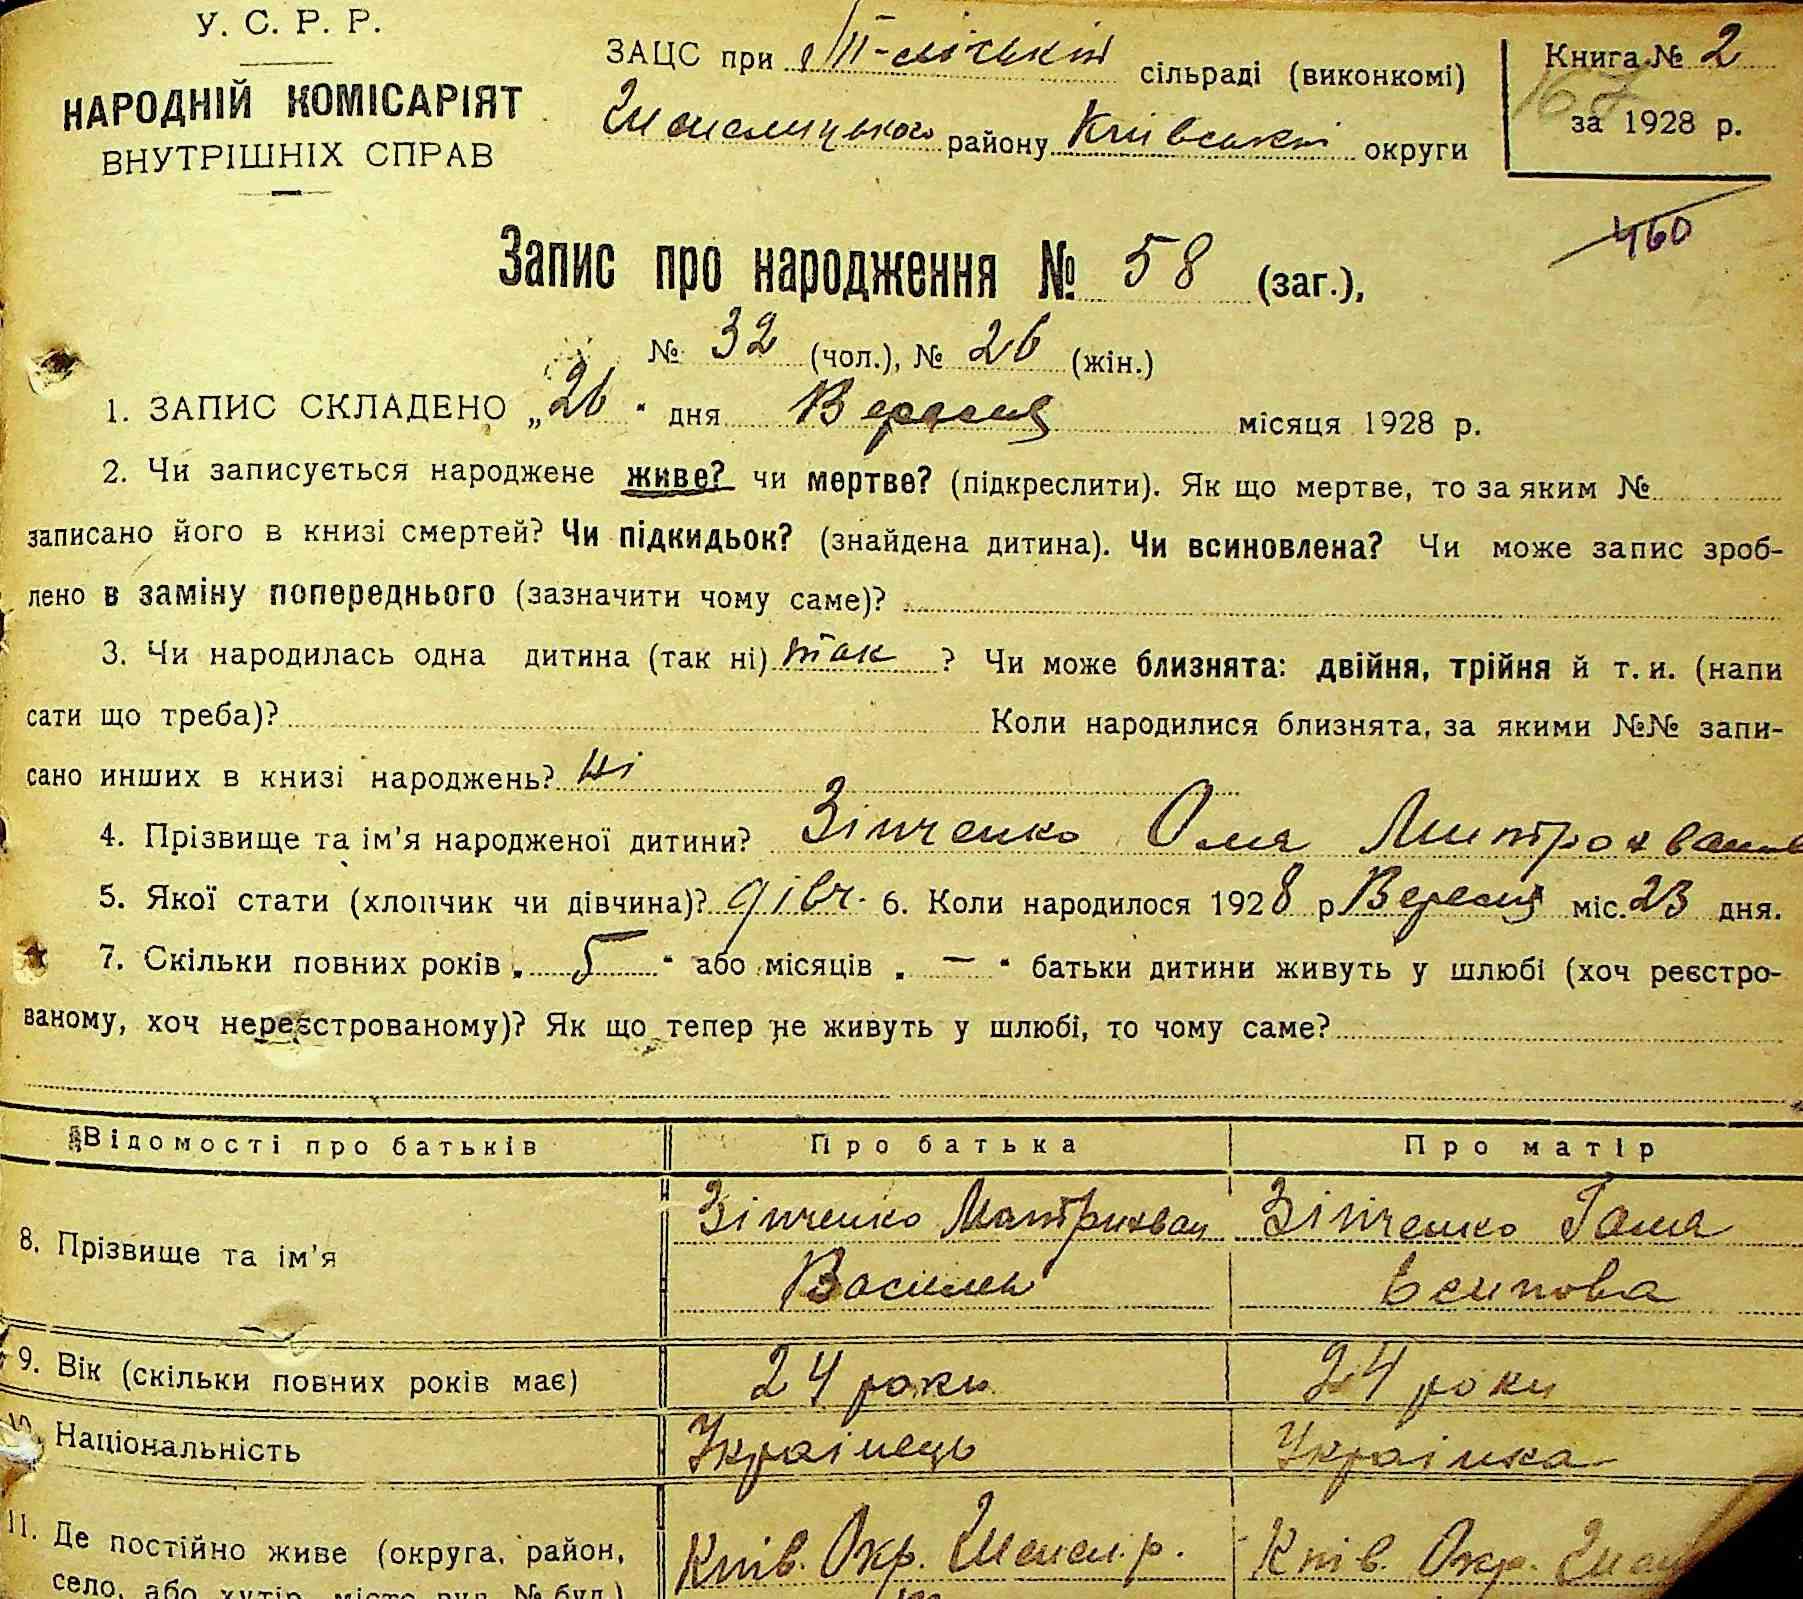 У. С. Р. Р.
НАРОДНІЙ КОМІСАРІЯТ
ВНУТРІШНІХ СПРАВ
ЗАЦС при сільраді (виконкомі)
району Київської округи
Книга № 2
167
за 1928 р.
460
Запис про народження № 58 (заг.),
№ 32 (чол.), № 26 (жін.)
1. ЗАПИС СКЛАДЕНО „26" дня Вересня місяця 1928 р.
2. Чи записується народжене живе? чи мертве? (підкреслити). Як що мертве, то за яким №
записано його в книзі смертей? Чи підкидьок? (знайдена дитина). Чи всиновлена? Чи може запис зроб-
лено в заміну попереднього (зазначити чому саме)?
3. Чи народилась одна дитина (так ні) так ? Чи може близнята: двійня, трійня й т. и. (напи
сати що треба)? Коли народилися близнята, за якими №№ запи-
сано инших в книзі народжень? Ні
4. Прізвище та ім'я народженої дитини? Зінченко Оля
5. Якої стати (хлопчик чи дівчина)? дівч. 6. Коли народилося 1928 р Вересня міс. 23 дня.
7. Скільки повних років „ 5 " або місяців „ — " батьки дитини живуть у шлюбі (хоч реєстро-
ваному, хоч нереєстрованому)? Як що тепер не живуть у шлюбі, то чому саме?
Відомості про батьків Про батька Про матір
8. Прізвище та ім'я Зінченко Зінченко Галя
Єсипова
9. Вік (скільки повних років має) 24 роки 24 роки
10. Національність Українець Українка
11. Де постійно живе (округа, район, Київ. Окр. р. Київ. Окр.
село, або хутір, місто вул. № буд.)